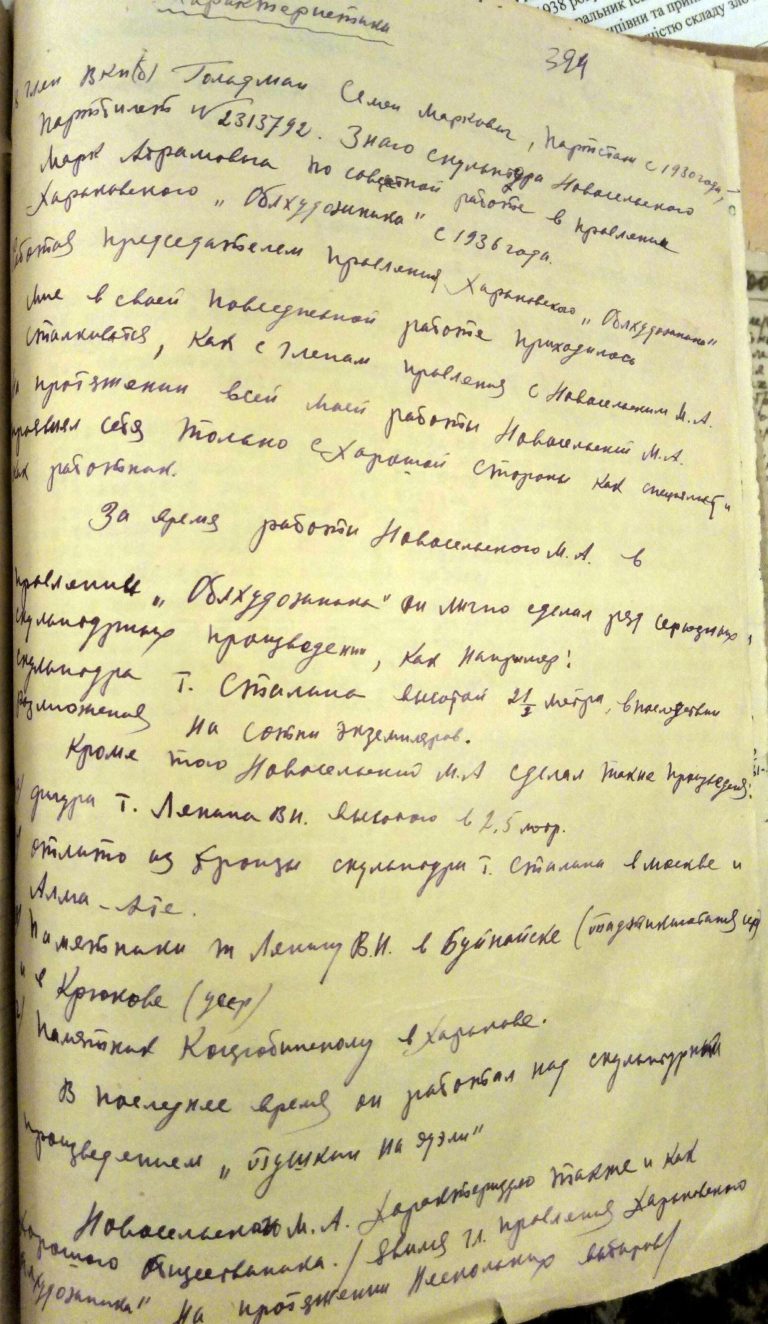 1938 ро
Характеристика
394
Я член ВКП(б) Гольдман Семен Маркович, партстаж с 1930 года,
партбилет №2313792. Знаю скульптора Новосельского
Марк Абрамовича по совместной работе в правлении
Харьковского „Облхудожника" с 1936 года.
Работая председателем правления Харьковского „Облхудожника"
мне в своей повседневной работе приходилось
сталкиватся, как с членам правления с Новосельским М.А.
На протяжении всей моей работы Новосельский М.А.
проявлял себя только с хорошей стороны как специалист и
как работник.
За время работы Новосельского М.А. в
правлении „Облхудожника" он лично сделал ряд серьозных
скульптурных произведений, как например:
скульптура т. Сталина высотой 2 1/2 метра, впоследствии
размножения на сотни экземпляров.
Кроме того Новосельский М.А сделал такие произведения:
фигура т. Ленина В.И. высотою в 2,5 метр.
отлито из бронзы скульптура т. Сталина в Москве и
Алма-Ате.
Памятники т Ленину В.И. в Буйнакске
и в Крюкове (УССР)
Памятник Коцюбинскому в Харькове.
В последнее время он работал над скульптурным
произведением „Пушкин на дуэли"
Новосельского М.А. характеризую также и как
хорошого общественника. /бывш чл. правления Харьковского
Облхудожника" на протяжении нескольких выборов/